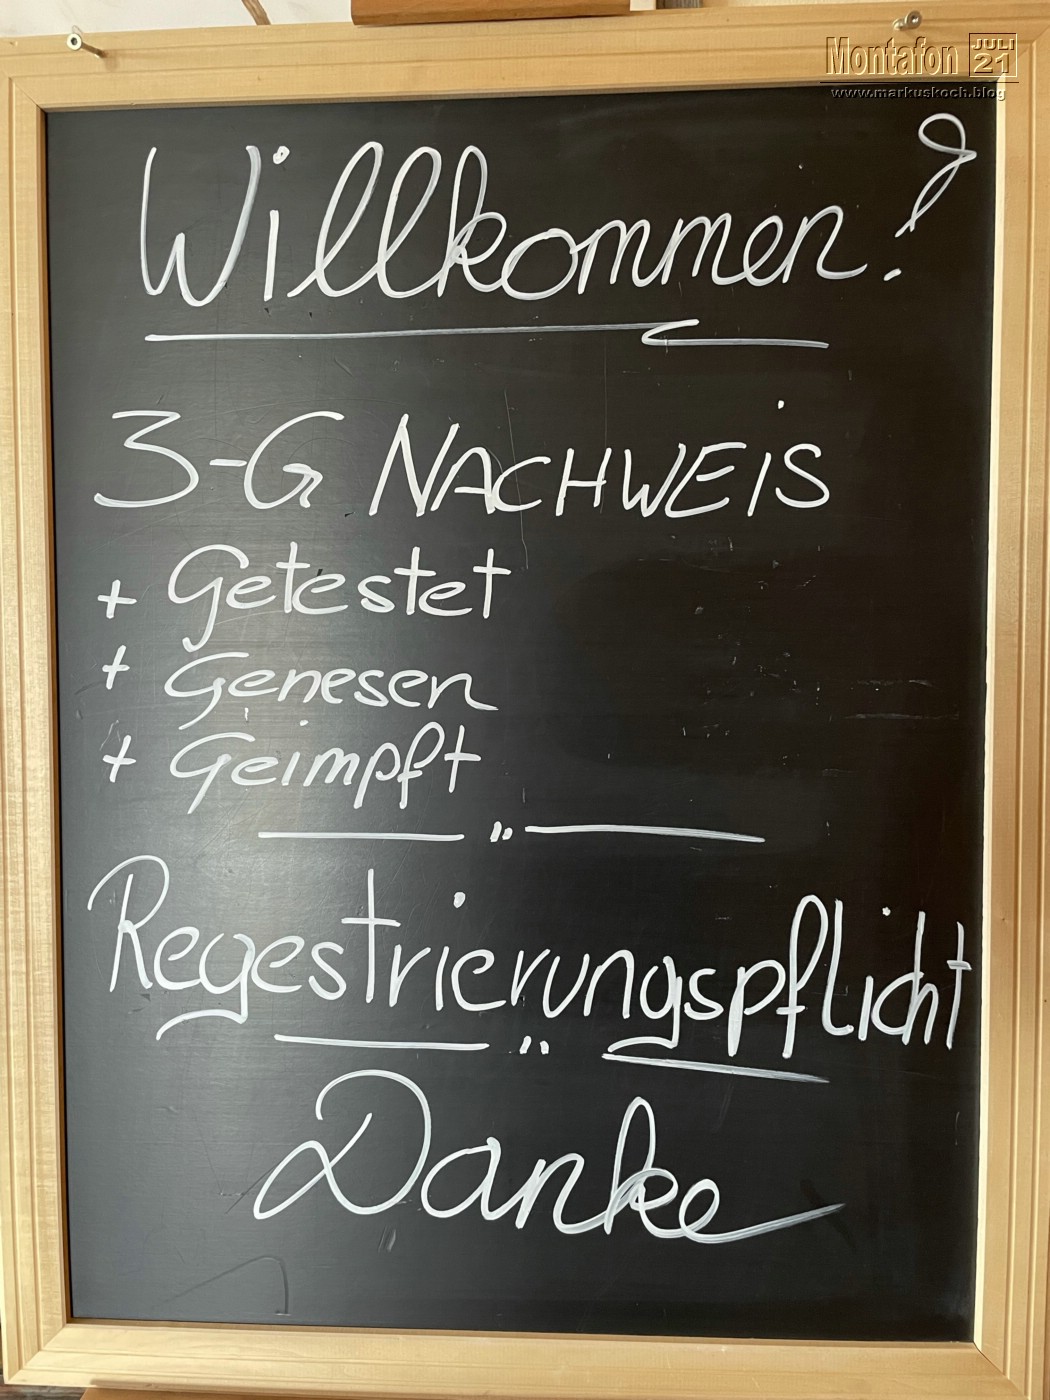 Montafon JULI 21
www.markuskoch.blog
Willkommen!
3-G NACHWEIS
+ Getestet
+ Genesen
+ Geimpft
Regestrierungspflicht
Danke